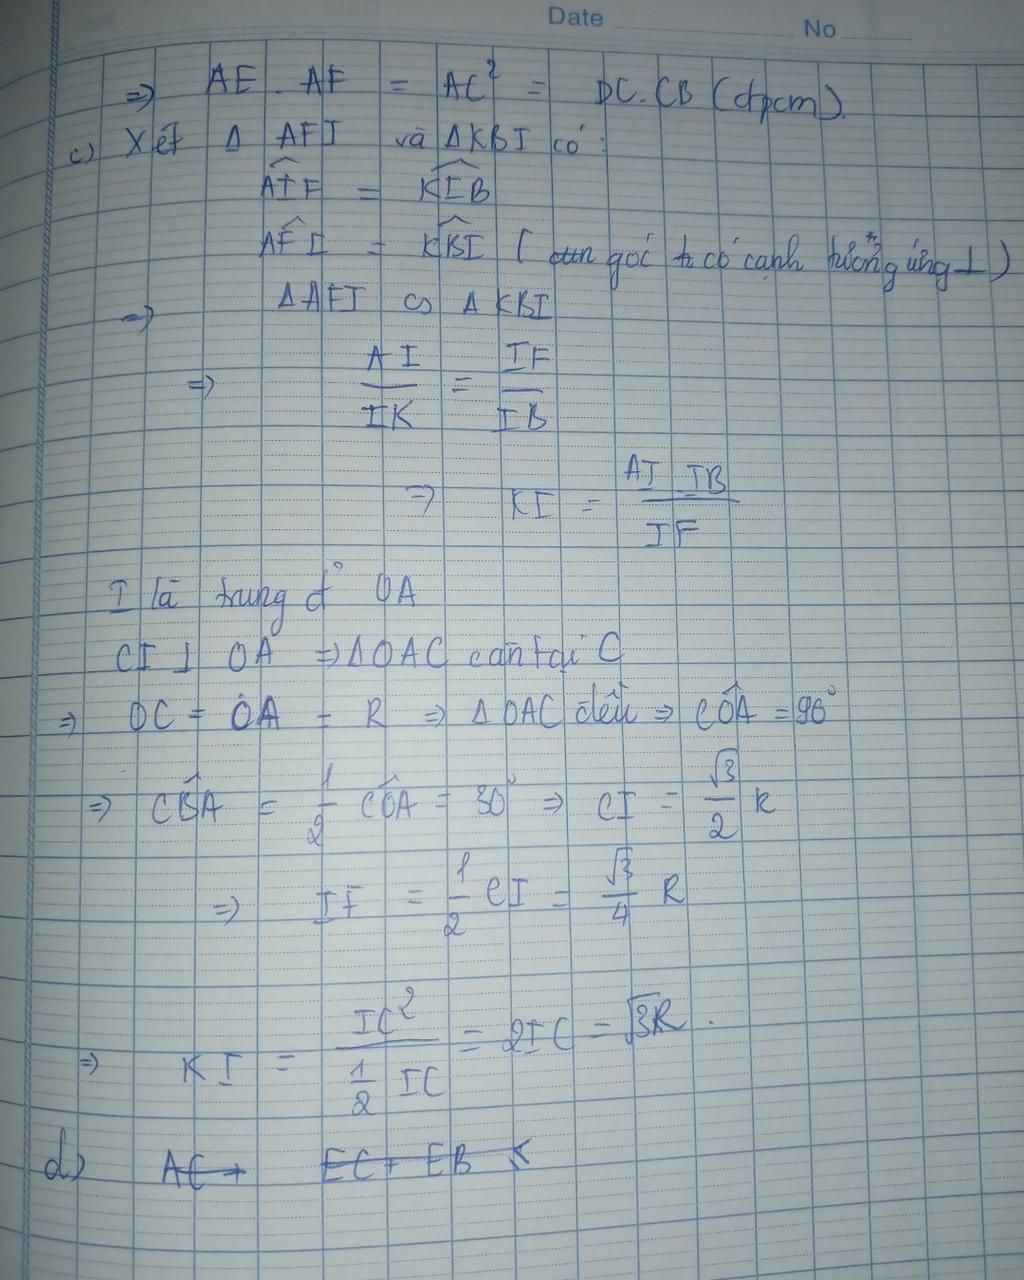 Date No
=> AE . AF = AC² = DC.CB (đpcm).
c) Xét Δ AFI và ΔKBI có:
AIF = KIB
AFI = KBI ( góc có cạnh tương ứng ⊥)
=> ΔAFI ∽ ΔKBI
=> AI/IK = IF/IB
=> KI = AI . IB/IF
I là trung đ° OA
CI ⊥ OA => ΔOAC cân tại C
=> OC = OA = R => ΔOAC đều => COA = 90°
=> CBA = 1/2 COA = 30° => CI = √3/2 R
=> IF = 1/2 CI = √3/4 R
=> KI = IC²/(1/2 IC) = 2IC = √3R.
d) AC + EC + EB <